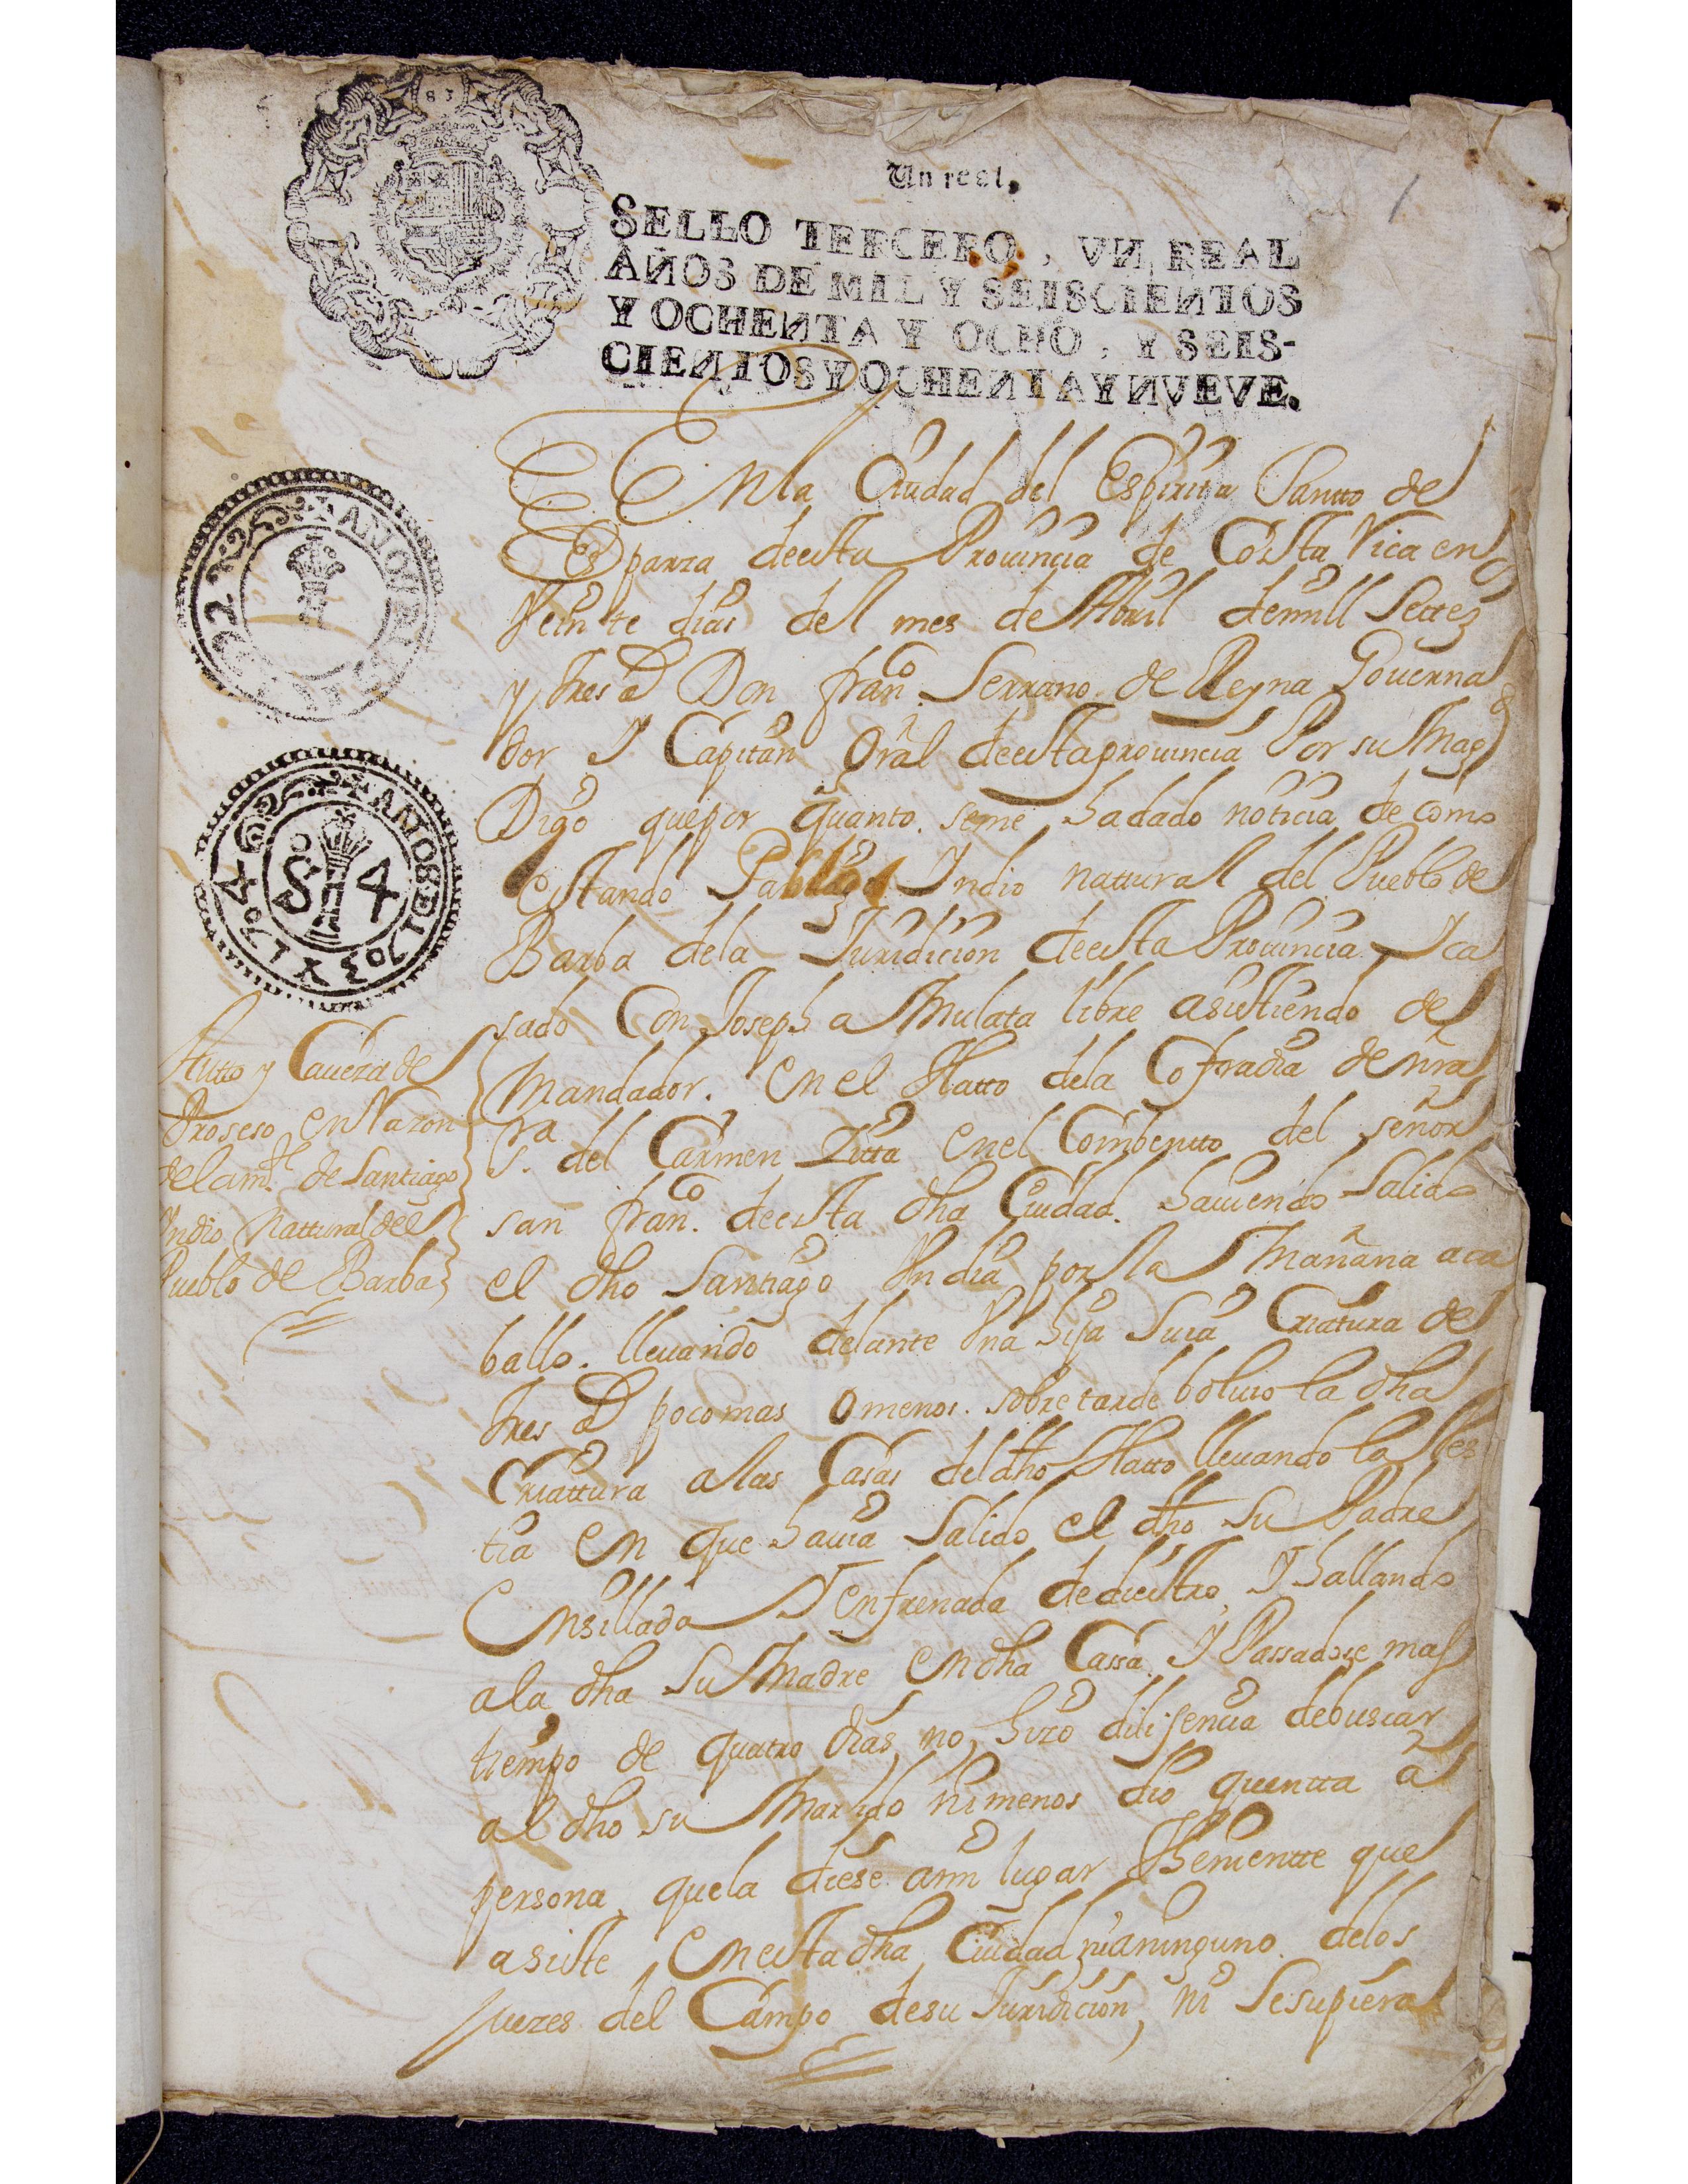 Un real,
SELLO TERCERO, VN REAL
AÑOS DE MIL Y SEISCIENTOS
Y OCHENTA Y OCHO, Y SEIS-
CIENTOS Y OCHENTA Y NVEVE.
1
En la Ciudad del Espiritu Santto de
Esparza de esta Prouincia de Costa Rica en
Veinte dias del mes de Abril de mill Settez
y tres ad Don franco Serrano de Reyna Gouerna
dor Y Capitan Gral de esta prouincia Por su Magd
Digo que por quanto se me ha dado noticia de como
estando Indio nattural del Pueblo de
Barba de la Juridicion de esta Prouincia Y ca
sado Con Josepha Mulata libre asistiendo de
Mandador. en el Hatto de la Cofradia de nra
Sra del Carmen Zitta en el Combentto del señor
san franco de esta dha Ciudad. hauiendo Salido
el dho Santiago Vn dia por la Mañana a ca
ballo. lleuando delante Vna hija Suia Criatura de
tres ad poco mas o menos. sobre tarde boluio la dha
Criattura a las Casas del dho Hatto lleuando la bes
tia en que hauia Salido el dho Su Padre
Ensillada Y enfrenada de diestro, Y hallando
a la dha Su Madre en dha Cassa. Y Passadose mas
tiempo de quatro dias no hizo dilijencia de buscar
al dho su Marido ni menos dio quentta a
persona que la diese a mi lugar Thenientte que
asiste en esta dha Ciudad ni a ninguno. de los
juezes del Campo de su Juridicion, ni Se supiera
Autto y Caueza de
Proseso en Razon
de la mte de Santiago
Yndio Nattural del
Pueblo de Barba